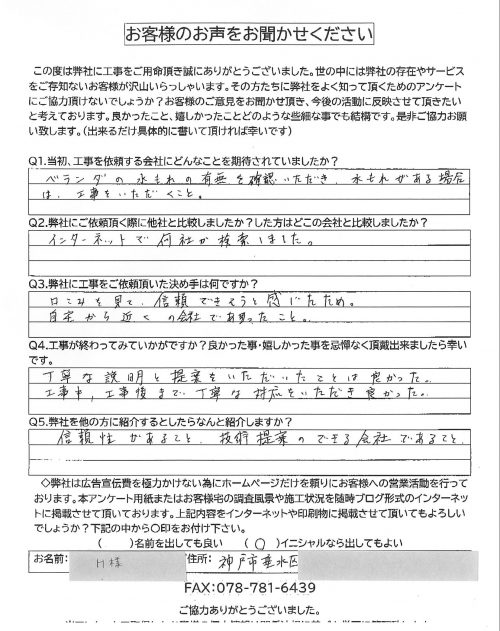 お客様のお声をお聞かせください
この度は弊社に工事をご用命頂き誠にありがとうございました。世の中には弊社の存在やサービス
をご存知ないお客様が沢山いらっしゃいます。その方たちに弊社をよく知って頂くためのアンケート
にご協力頂けないでしょうか？お客様のご意見をお聞かせ頂き、今後の活動に反映させて頂きたい
と考えております。良かったこと、嬉しかったことどのような些細な事でも結構です。是非ご協力お願
い致します。(出来るだけ具体的に書いて頂ければ幸いです)
Q1.当初、工事を依頼する会社にどんなことを期待されていましたか？
ベランダの水もれの有無を確認いただき、水もれがある場合
は、工事をいただくこと。
Q2.弊社にご依頼頂く際に他社と比較しましたか？した方はどこの会社と比較しましたか？
インターネットで何社か検索しました。
Q3.弊社に工事をご依頼頂いた決め手は何ですか？
口こみを見て、信頼できそうと感じたため。
自宅から近くの会社であったこと。
Q4.工事が終わってみていかがですか？良かった事・嬉しかった事を忌憚なく頂戴出来ましたら幸い
です。
丁寧な説明と提案をいただいたことは良かった。
工事中、工事後まで丁寧な対応をいただき良かった。
Q5.弊社を他の方に紹介するとしたらなんと紹介しますか？
信頼性があること、技術提案のできる会社であること。
◇弊社は広告宣伝費を極力かけない為にホームページだけを頼りにお客様への営業活動を行って
おります。本アンケート用紙またはお客様宅の調査風景や施工状況を随時ブログ形式のインターネッ
トに掲載させて頂いております。上記内容をインターネットや印刷物に掲載させて頂いてもよろしい
でしょうか？下記の中から〇印をお付け下さい。
( )名前を出しても良い (〇)イニシャルなら出してもよい
お名前： H様 住所： 神戸市垂水区
FAX:078-781-6439
ご協力ありがとうございました。